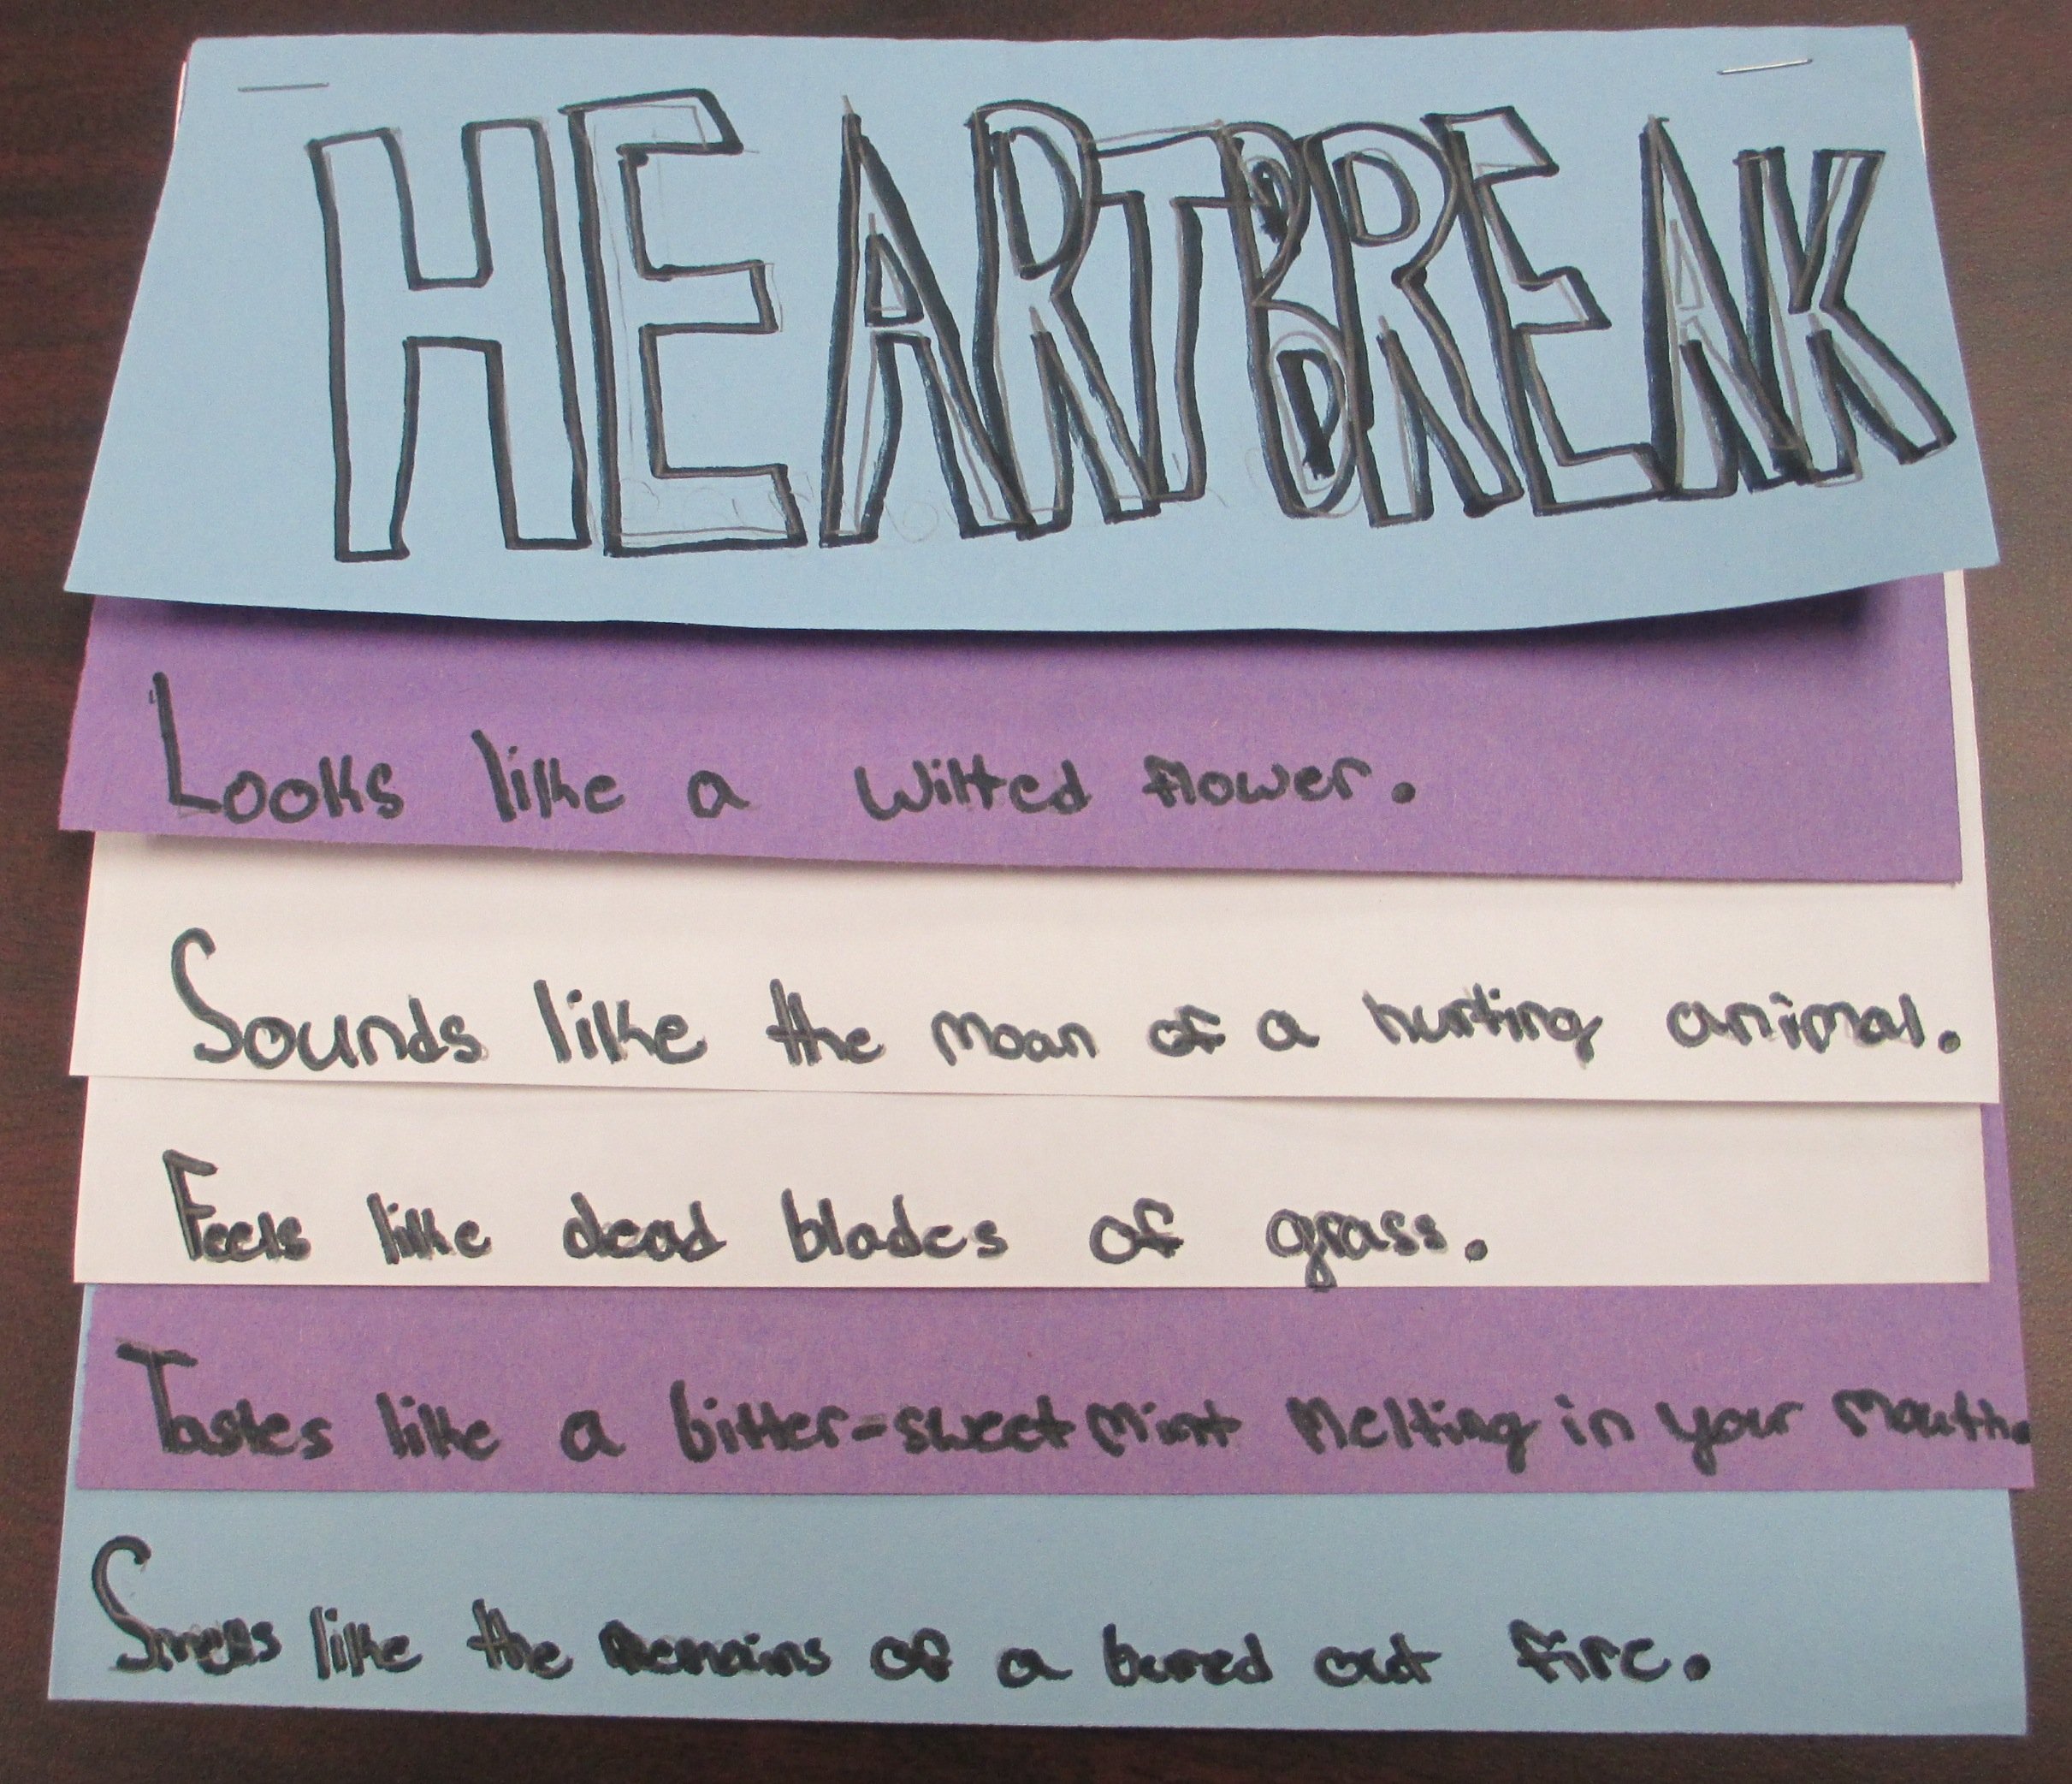 HEARTBREAK
Looks like a wilted flower.
Sounds like the moan of a hurting animal.
Feels like dead blades of grass.
Tastes like a bitter-sweet mint melting in your mouth.
Smells like the remains of a burned out fire.